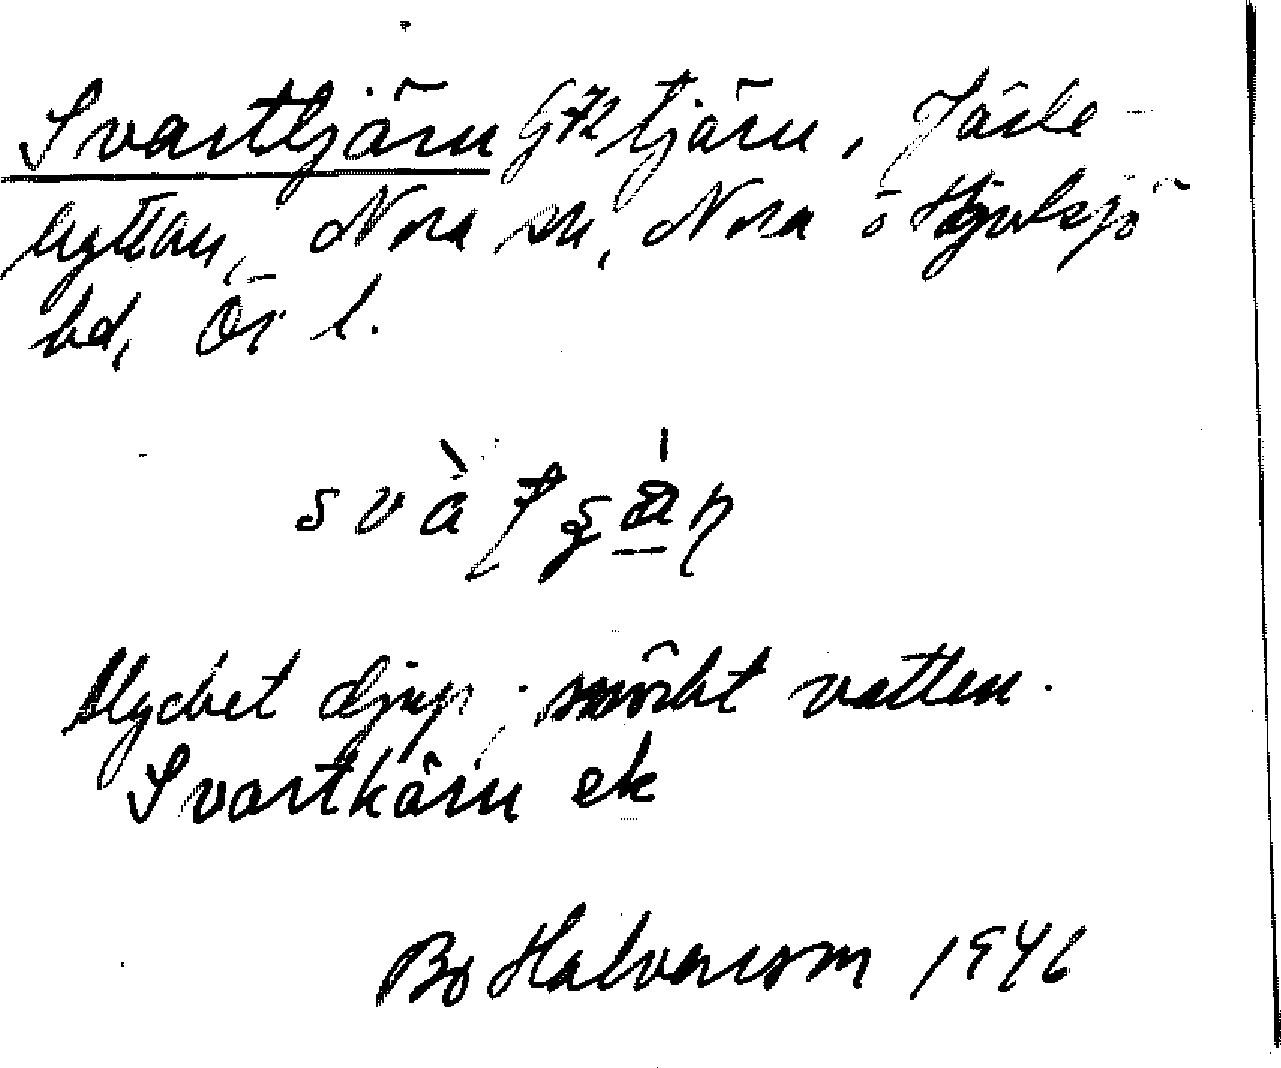 Svarttjärn G72 tjärn, Järle-
hyttan, Nora sn, Nora o Hjulsjö
bd, Ör l.
Mycket djup; mörkt vatten.
Svartkärn ek
Bo Halvarsson 1946